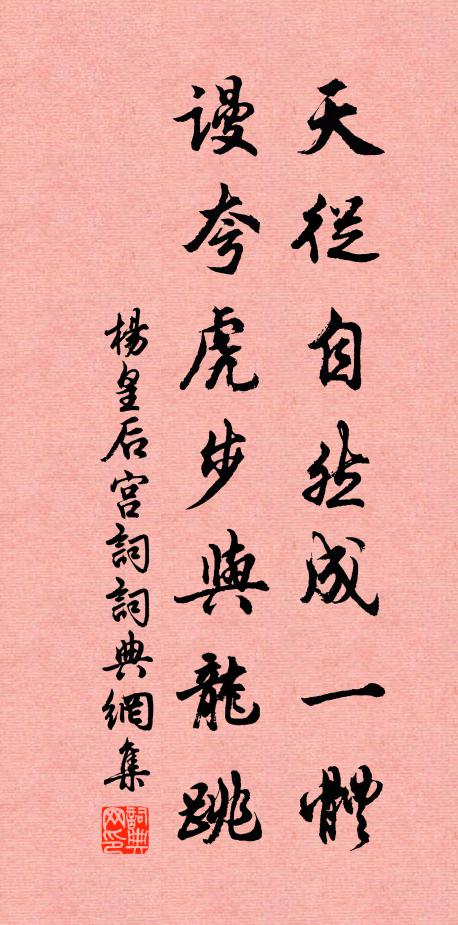 天從自然成一體
謾夸虎步與龍跳
楊皇后宮詞詞典網集
詞典网印